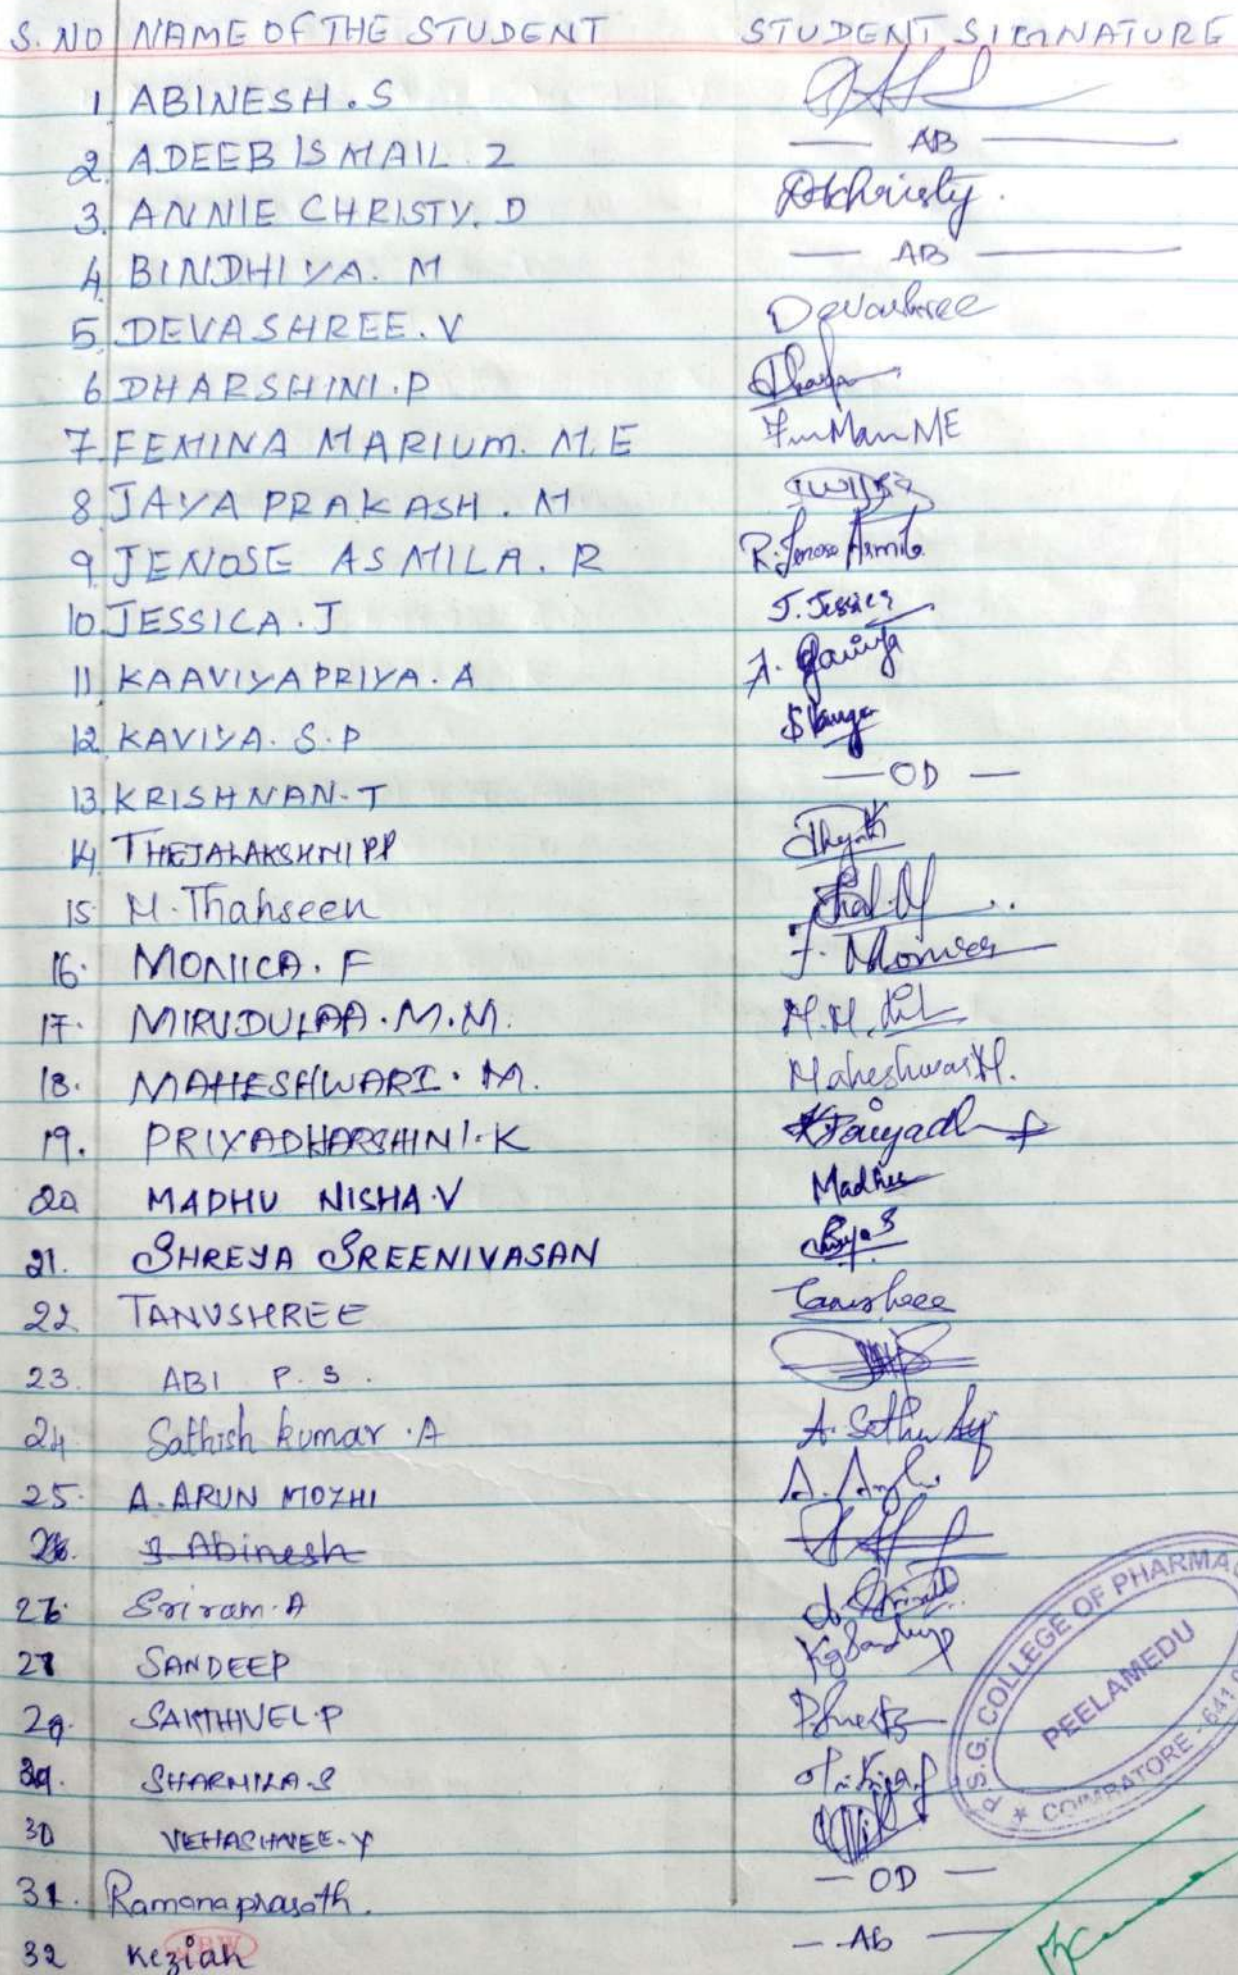 S.NO NAME OF THE STUDENT STUDENT SIGNATURE
1 ABINESH.S
2. ADEEB ISMAIL.Z — AB —
3. ANNIE CHRISTY.D
4 BINDHIYA.M — AB —
5. DEVASHREE.V Devashree
6 DHARSHINI.P
7. FEMINA MARIUM.M.E
8 JAYA PRAKASH.M
9. JENOSE ASMILA.R R.Jenose Asmila
10. JESSICA.J J.Jessica
11 KAAVIYAPRIYA.A
12. KAVIYA.S.P
13. KRISHNAN.T — OD —
14 THEJALAKSHMI PP
15 M.Thahseen
16. MONICA.F F. Monica
17. MIRUDULAA.M.M.
18. MAHESHWARI.M. Maheshwari M.
19. PRIYADHARSHINI.K
20 MADHU NISHA.V Madhu
21. SHREYA SREENIVASAN
22 TANUSHREE Tanushree
23. ABI P.S.
24 Sathish kumar.A
25. A.ARUN MOZHI
26. S Abinesh
26. Sriram.A
27 SANDEEP
28. SAKTHIVEL.P
29. SHARMILA.S
30 VEHASHNEE.Y
31. Ramanaprasath. — OD —
32 Keziah — Ab —
P.S.G. COLLEGE OF PHARMAC
PEELAMEDU
COIMBATORE - 641